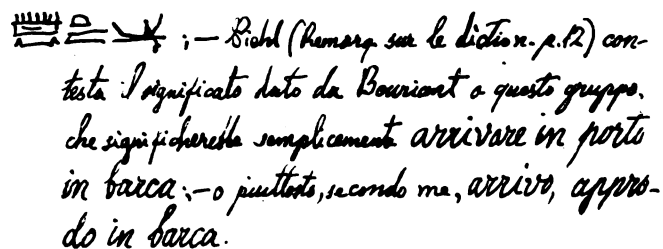 ;— Piehl (Remarq. sur le diction. p. 12) con-
testa il significato dato da Bouriant a questo gruppo,
che significherebbe semplicemente arrivare in porto
in barca;— o piuttosto, secondo me, arrivo, appro-
do in barca.